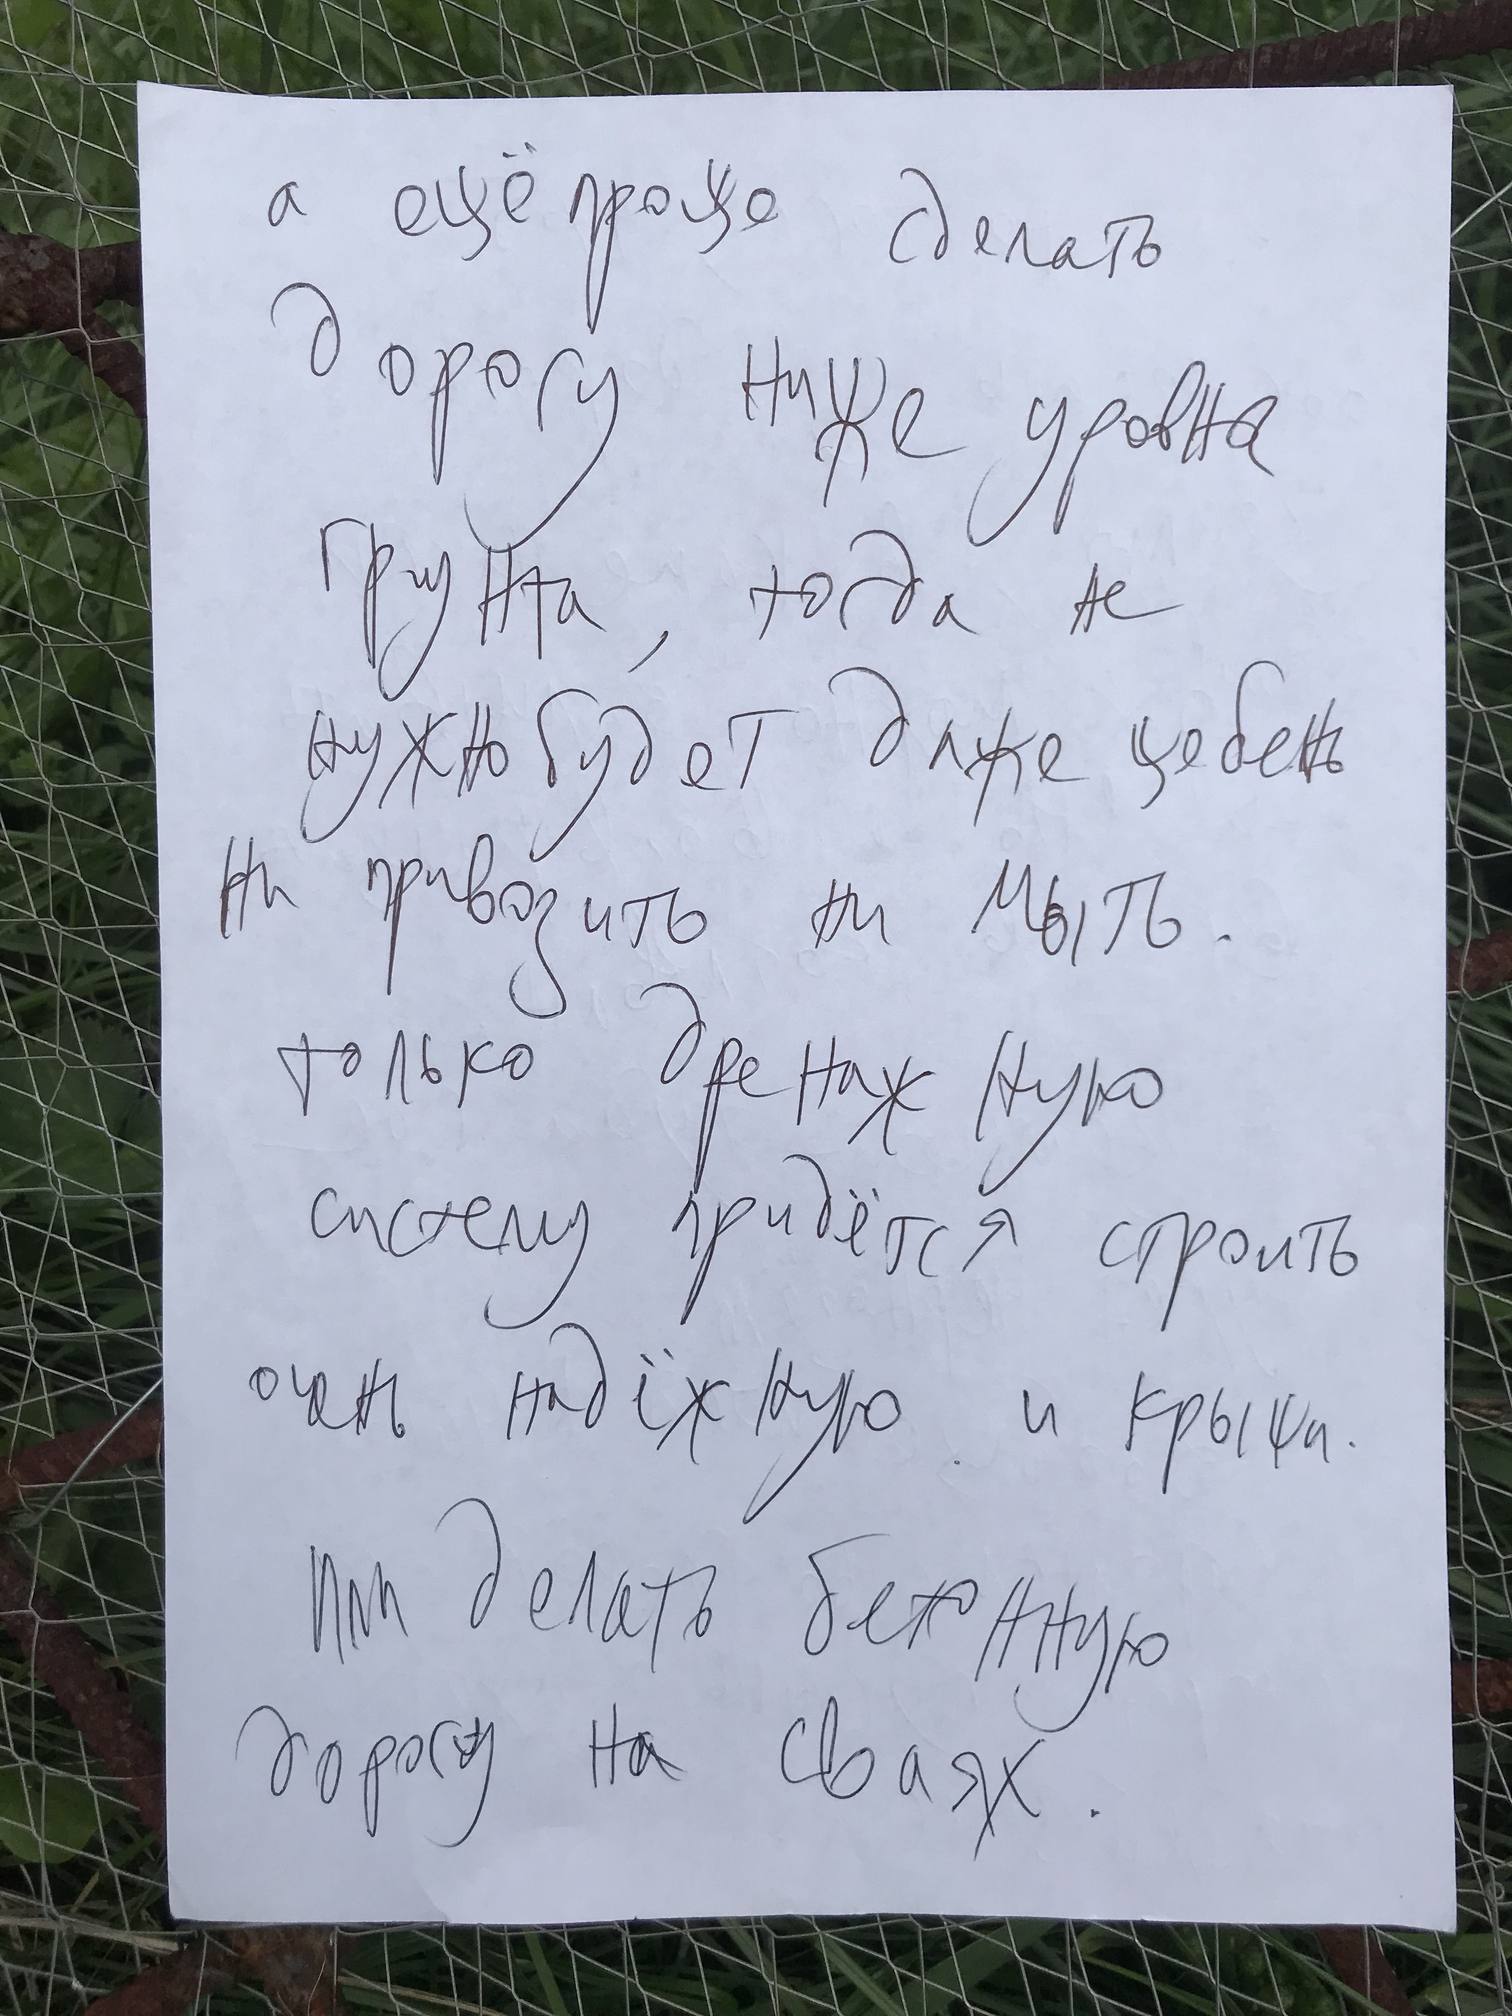 а ещё проще сделать
дорогу ниже уровня
грунта, тогда не
нужно будет даже щебень
ни привозить ни мыть.
только дренажную
систему придётся строить
очень надёжную. и крыши.
или делать бетонную
дорогу на сваях.